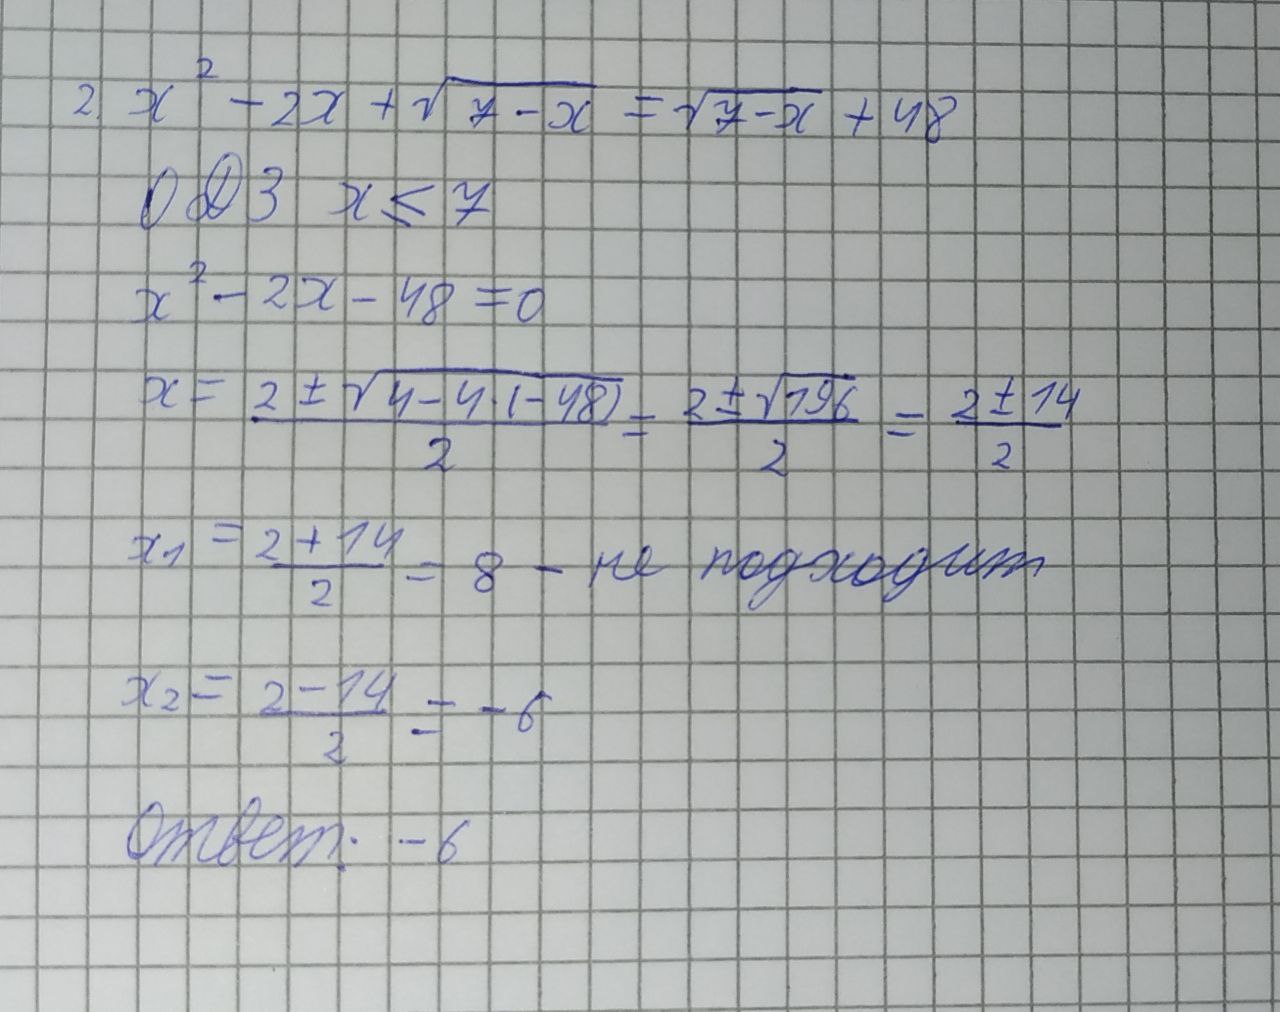 2. x² - 2x + √(7 - x) = √(7 - x) + 48
ОДЗ x ≤ 7
x² - 2x - 48 = 0
x = (2 ± √(4 - 4·(-48)))/2 = (2 ± √196)/2 = (2 ± 14)/2
x₁ = (2 + 14)/2 = 8 - не подходит
x₂ = (2 - 14)/2 = -6
Ответ: -6